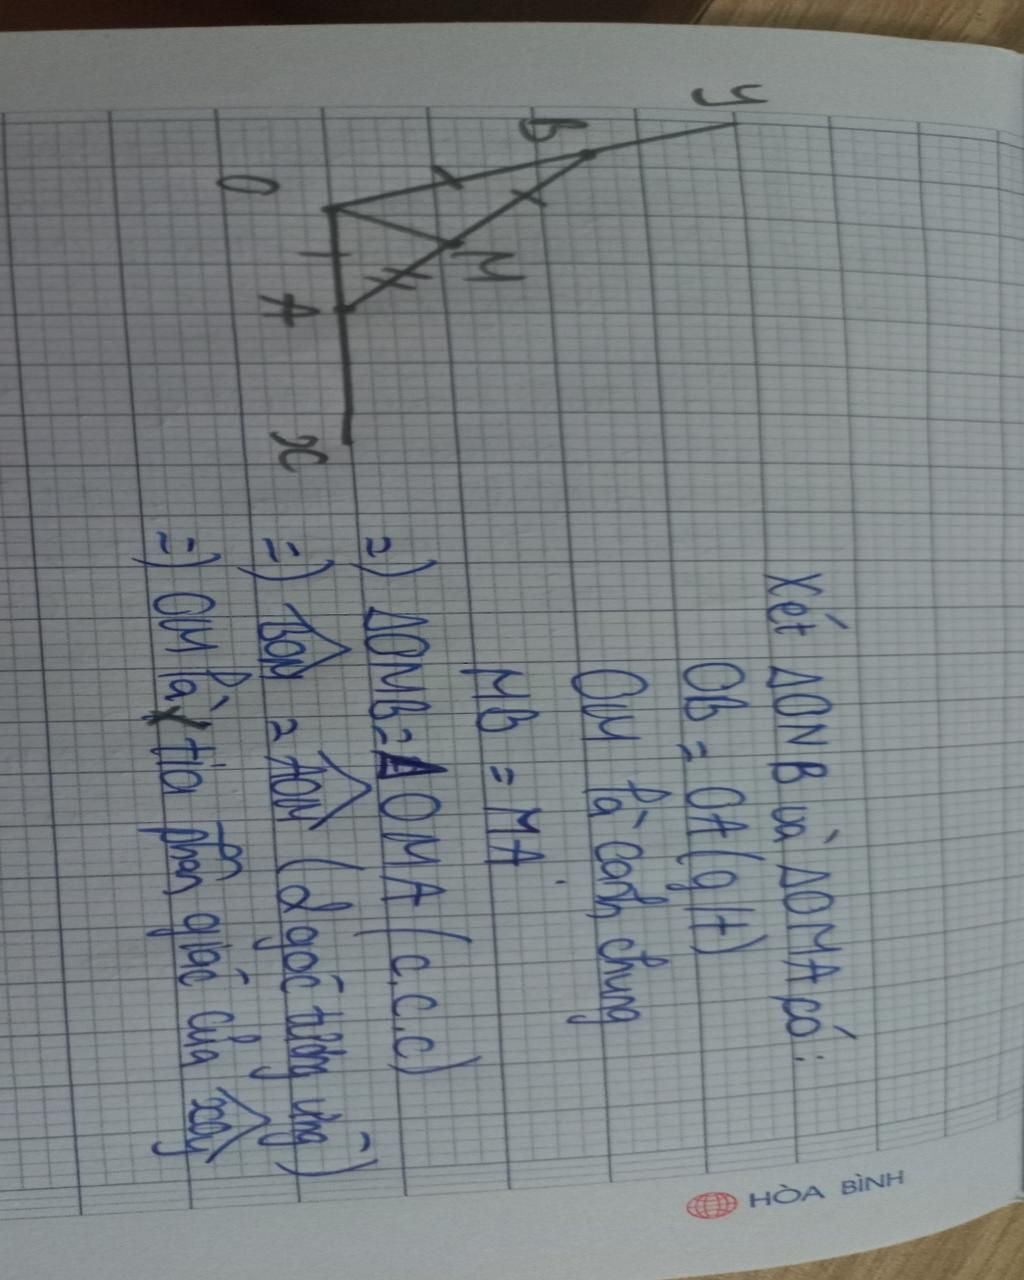 y
B
M
O
A
x
Xét ΔONB và ΔOMA có:
OB = OA (g/t)
OM là cạnh chung
MB = MA
=) ΔOMB = ΔOMA (c.c.c)
=) BOM = AOM (2 góc tương ứng)
=) OM là tia phân giác của xOy
HÒA BÌNH